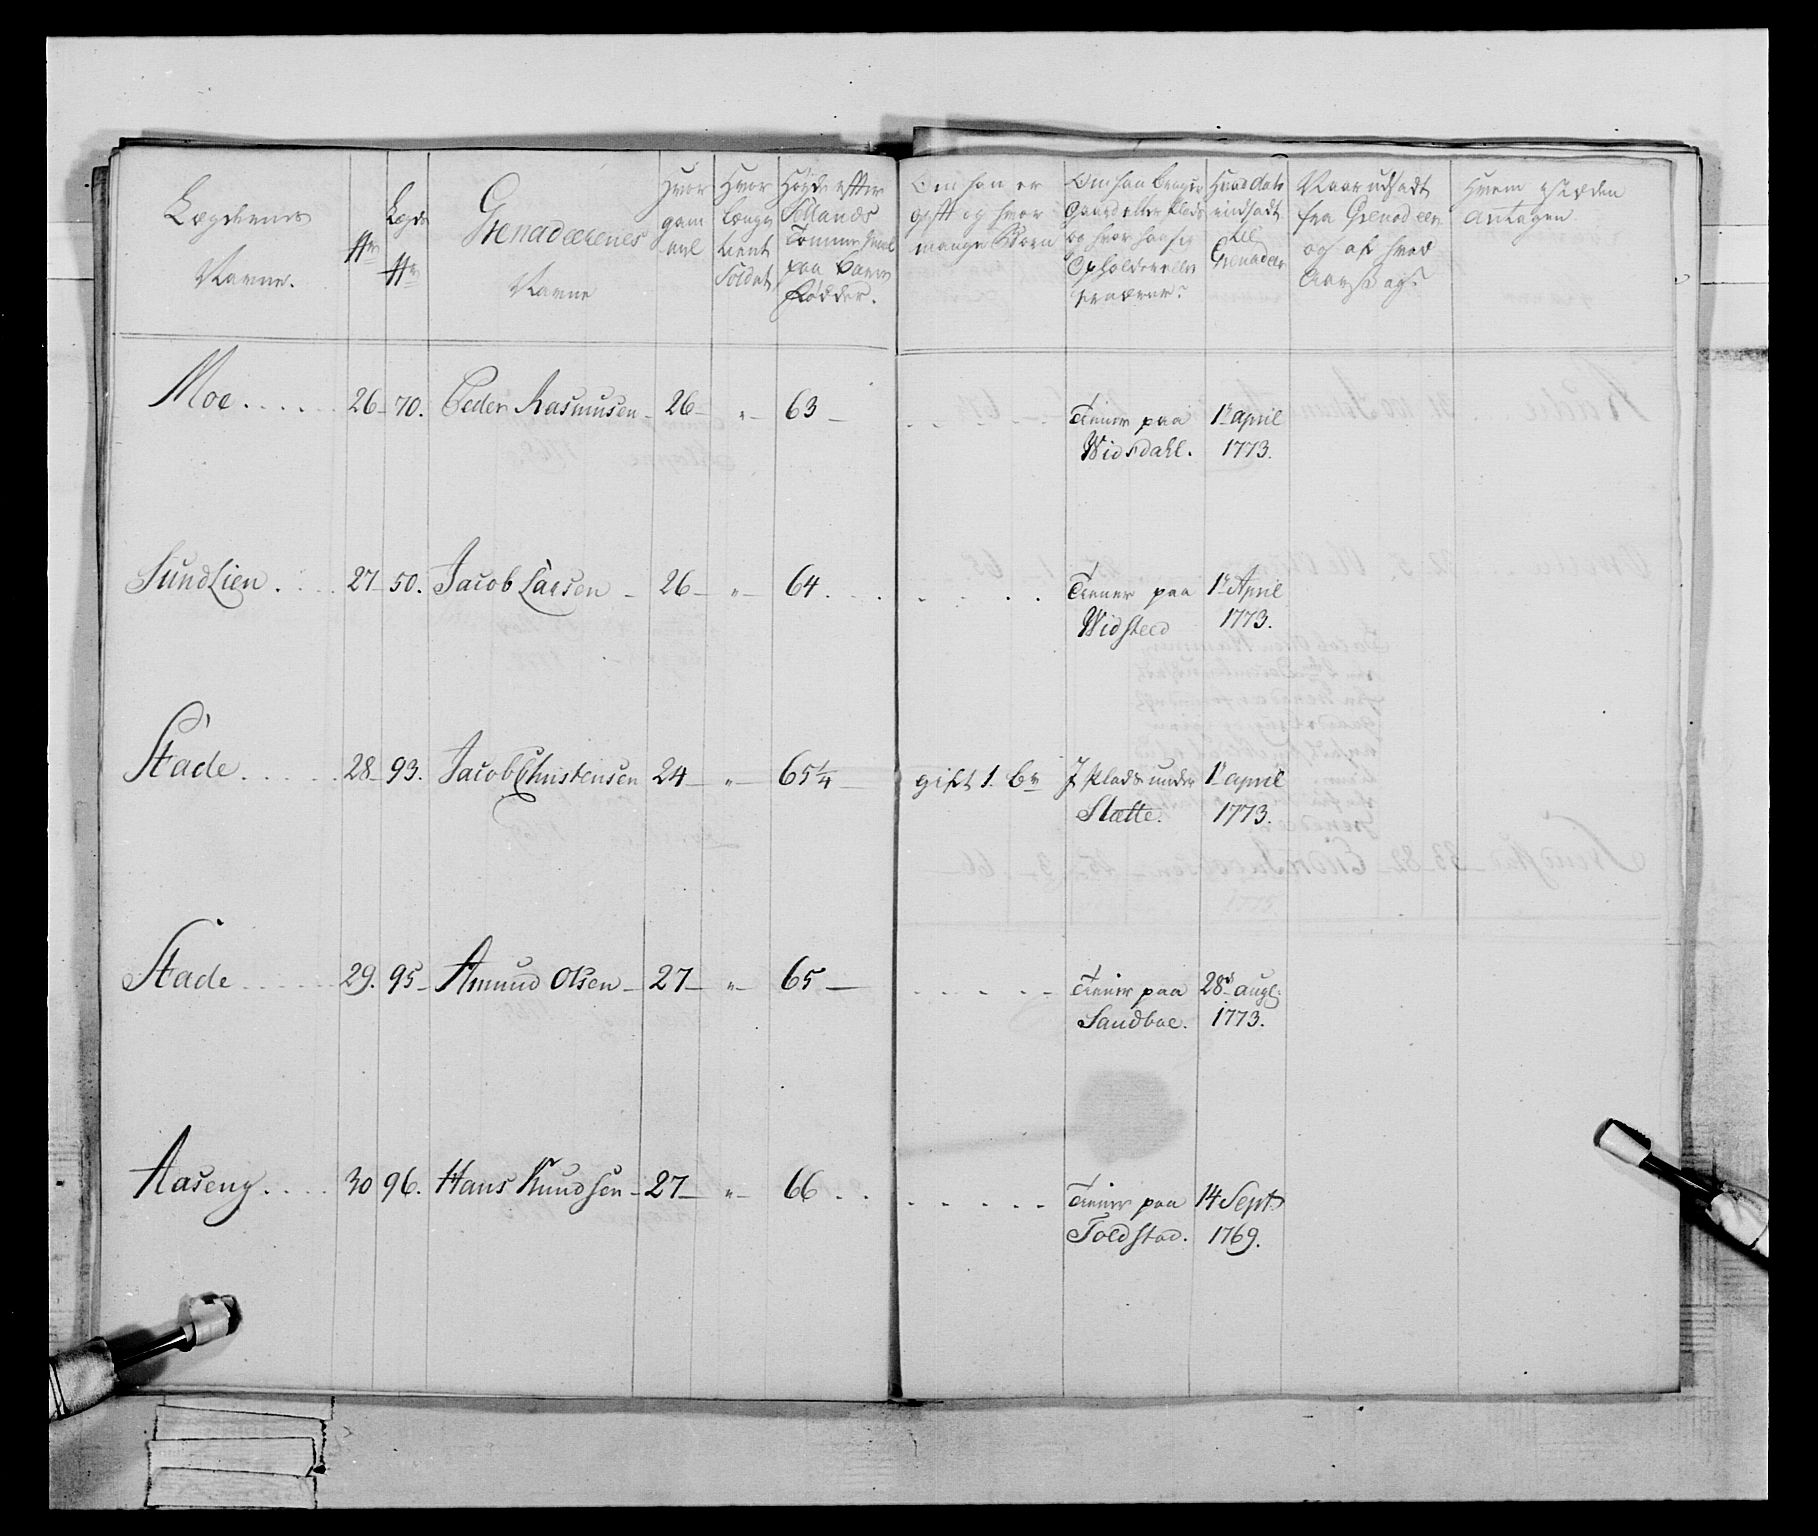 Lægdernes
Navne.
No
Lægds
No
Grenadeerenes
Navne
Hvor
gam
mel
Hvor
længe
tient
Soldat
Høyde efter
Sellands
Tomme Maal
paa bare
Fødder.
Om han er
gift og hvor
mange Børn
Om han bruger
Gaard eller Plads
og hvor han sig
Opholder eller
Hvad dato
indsadt
til
Grenadeer
Naar udsadt
fra Grenadeer
og af hvad
Aarsag.
Hvem i steden
Antagen.
Moe 26 70. Peder Rasmusen 26 " 63 Tiener paa 1te april
Widsdahl. 1773.
Sundlien 27 50. Jacob Larsen 26 " 64 Tiener paa 1te April
Widsteed 1773.
Stade 28 93. Jacob Christensen 24 " 65¼ gift 1. br J Plads under 1te april
Slætte. 1773.
Stade 29. 95 Amund Olsen 27 " 65 Tiener paa 28d aug.
Sandboe. 1773.
Aaseng 30 96. Hans Knudsen 27 " 66 Tiener paa 14 Sept
Toldstad. 1769.